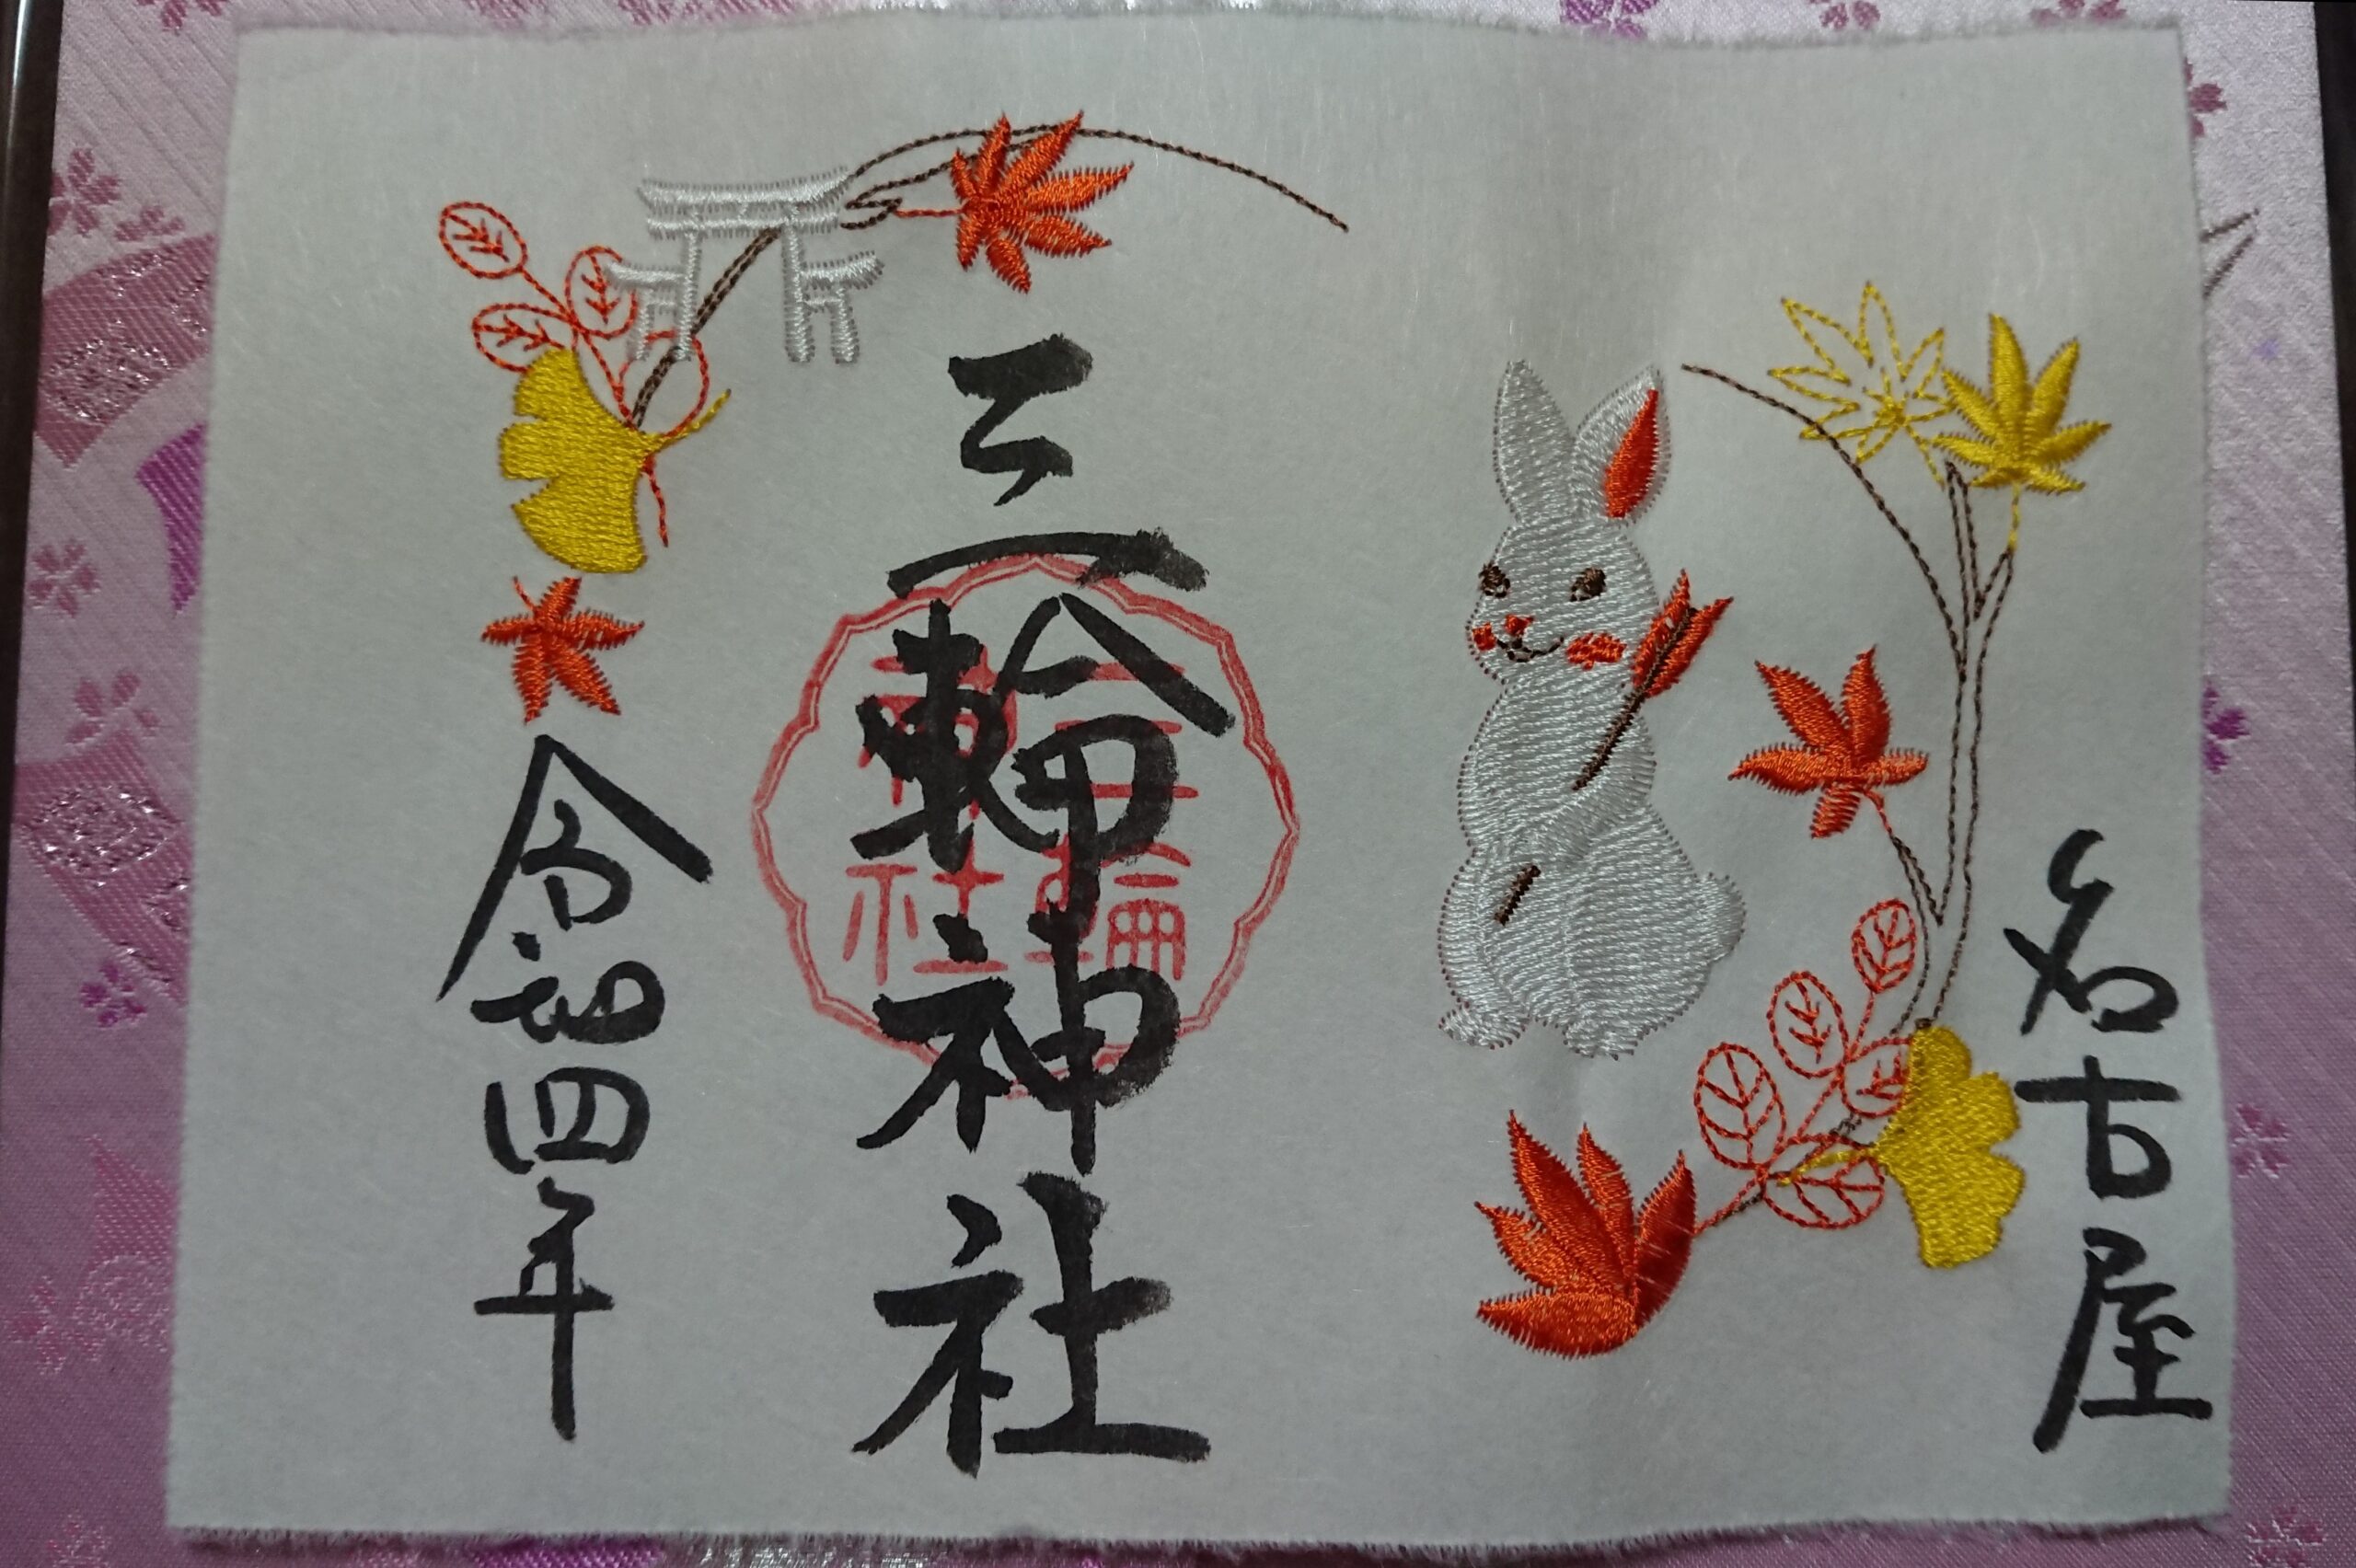 名古屋
三輪神社
三輪神社
令和四年